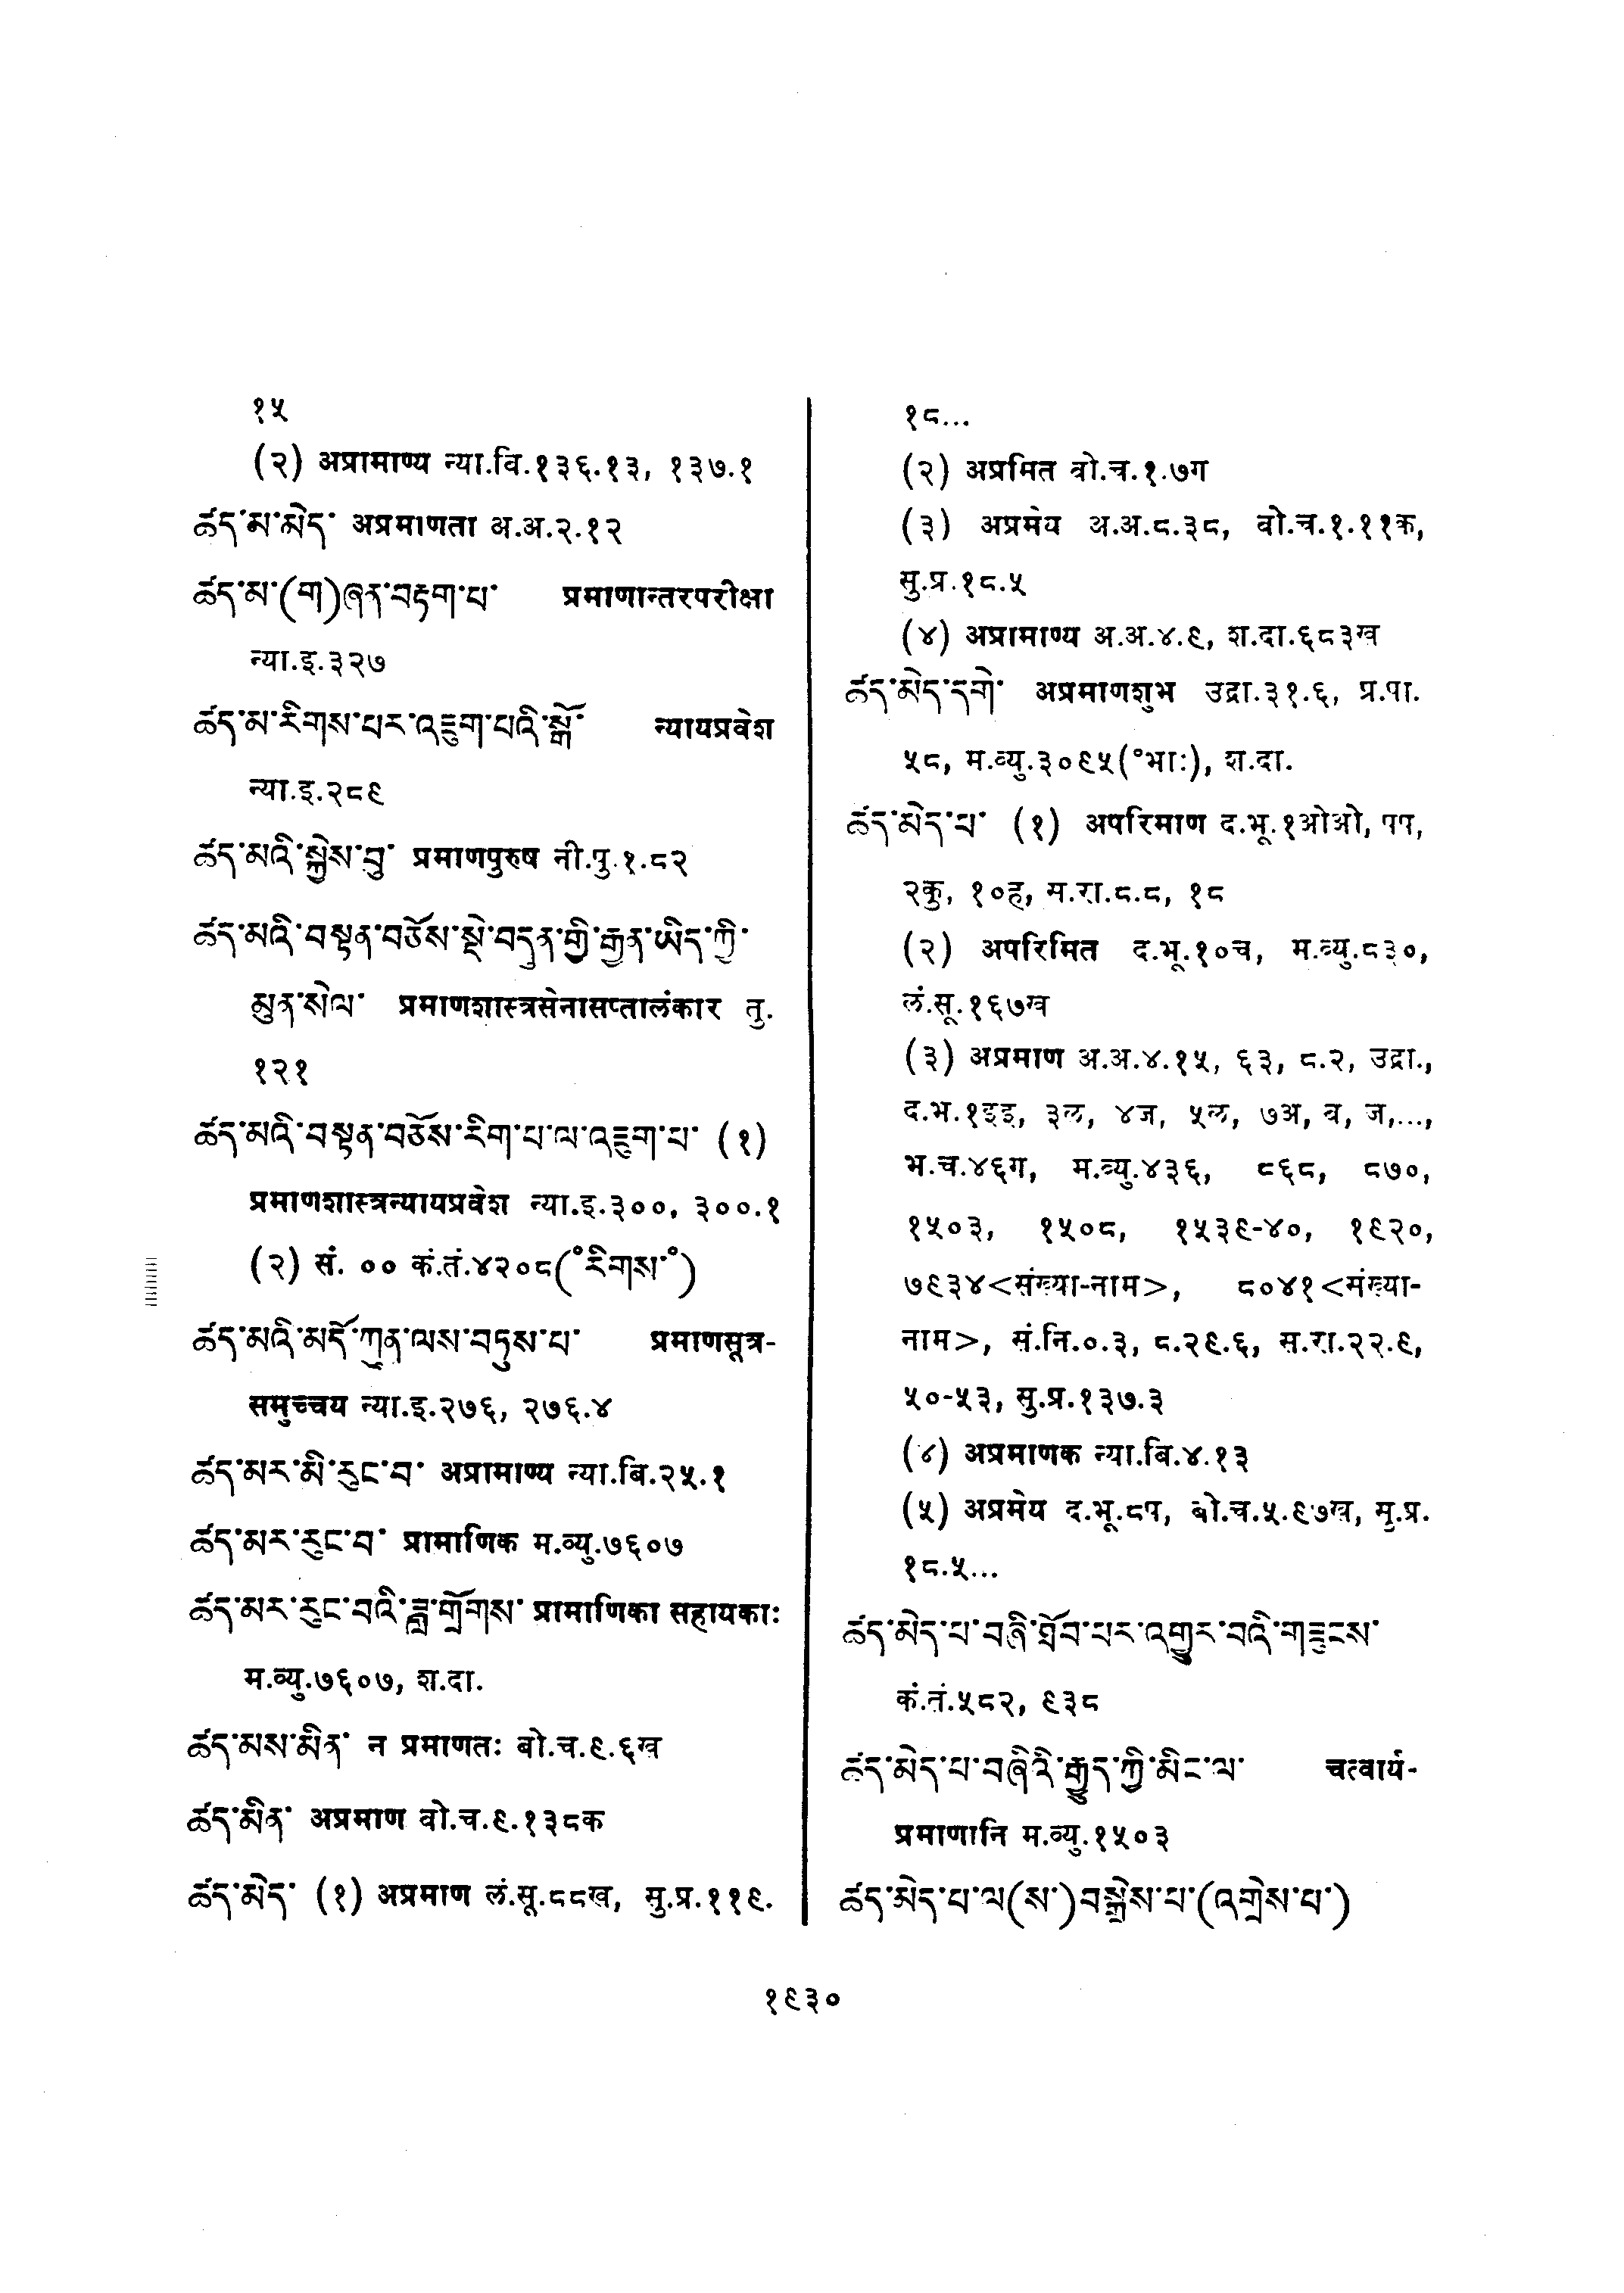 १५
(२) अप्रामाण्य न्या.वि.१३६.१३, १३७.१
ཚད་མ་མེད་ अप्रमाणता अ.अ.२.१२
ཚད་མ་(ག)ཞན་བརྟག་པ་ प्रमाणान्तरपरीक्षा
न्या.इ.३२७
ཚད་མ་རིགས་པར་འཇུག་པའི་སྒོ་ न्यायप्रवेश
न्या.इ.२८९
ཚད་མའི་སྐྱེས་བུ་ प्रमाणपुरुष नी.पु.१.८२
ཚད་མའི་བསྟན་བཅོས་སྡེ་བདུན་གྱི་རྒྱན་ཡིད་ཀྱི་
མུན་སེལ་ प्रमाणशास्त्रसेनासप्तालंकार तु.
१२१
ཚད་མའི་བསྟན་བཅོས་རིག་པ་ལ་འཇུག་པ་ (१)
प्रमाणशास्त्रन्यायप्रवेश न्या.इ.३००, ३००.१
(२) सं. ०० कं.तं.४२०८(°རིགས་°)
ཚད་མའི་མདོ་ཀུན་ལས་བཏུས་པ་ प्रमाणसूत्र-
समुच्चय न्या.इ.२७६, २७६.४
ཚད་མར་མི་རུང་བ་ अप्रामाण्य न्या.बि.२५.१
ཚད་མར་རུང་བ་ प्रामाणिक म.व्यु.७६०७
ཚད་མར་རུང་བའི་ཟླ་གྲོགས་ प्रामाणिका सहायकाः
म.व्यु.७६०७, श.दा.
ཚད་མས་མིན་ न प्रमाणतः बो.च.९.६ख
ཚད་མིན་ अप्रमाण वो.च.९.१३८क
ཚད་མེད་ (१) अप्रमाण लं.सू.८८ख, सु.प्र.११९.
१८...
(२) अप्रमित वो.च.१.७ग
(३) अप्रमेय अ.अ.८.३८, वो.च.१.११क,
सु.प्र.१८.५
(४) अप्रामाण्य अ.अ.४.९, श.दा.६८३ख
ཚད་མེད་དགེ་ अप्रमाणशुभ उद्रा.३१.६, प्र.पा.
५८, म.व्यु.३०९५(°भाः), श.दा.
ཚད་མེད་པ་ (१) अपरिमाण द.भू.१ओओ, पप,
२कु, १०ह, म.रा.८.८, १८
(२) अपरिमित द.भू.१०च, म.व्यु.८३०,
लं.सू.१६७ख
(३) अप्रमाण अ.अ.४.१५, ६३, ८.२, उद्रा.,
द.भ.१इइ, ३ल, ४ज, ५ल, ७अ, व, ज,...,
भ.च.४६ग, म.व्यु.४३६, ८६८, ८७०,
१५०३, १५०८, १५३९-४०, १९२०,
७९३४<संख्या-नाम>, ८०४१<संख्या-
नाम>, सं.नि.०.३, ८.२९.६, स.रा.२२.९,
५०-५३, सु.प्र.१३७.३
(४) अप्रमाणक न्या.बि.४.१३
(५) अप्रमेय द.भू.८प, बो.च.५.९७ख, मु.प्र.
१८.५...
ཚད་མེད་པ་བཞི་ཐོབ་པར་འགྱུར་བའི་གཟུངས་
कं.तं.५८२, ९३८
ཚད་མེད་པ་བཞིའི་རྒྱུད་ཀྱི་མིང་ལ་ चत्वार्य-
प्रमाणानि म.व्यु.१५०३
ཚད་མེད་པ་ལ(ས་)བསྒྲེས་པ་(འགྲེས་པ་)
१९३०